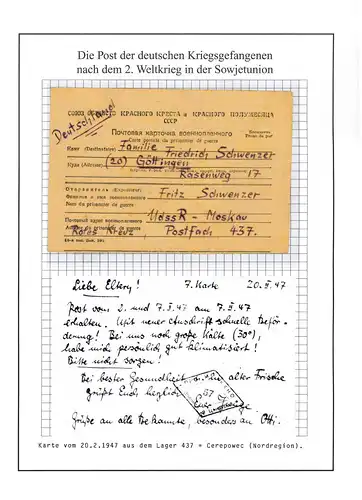 Die Post der deutschen Kriegsgefangenen
nach dem 2. Weltkrieg in der Sowjetunion
СОЮЗ ОБЩЕСТВ КРАСНОГО КРЕСТА и КРАСНОГО ПОЛУМЕСЯЦА
СССР
Deutschland
Почтовая карточка военнопленного
Carte postale du prisonnier de guerre
Кому (Destinataire) Familie Friedrich Schwenzer
Куда (Adresse) (20) Göttingen
Rasenweg 17
Отправитель (Expéditeur)
Фамилия и имя военнопленного Fritz Schwenzer
Nom du prisonnier de guerre
Почтовый адрес военнопленного UdSSR - Moskau
Adresse du prisonnier de guerre
Rotes Kreuz, Postfach 437.
Liebe Eltern! 7. Karte 20.II.47
Post vom 2. und 7.I.47 am 7.II.47
erhalten. Mit neuer Anschrift schnelle Beför-
derung! Bei uns noch große Kälte (30°),
habe mich persönlich gut klimatisiert!
Bitte nicht sorgen!
Bei bester Gesundheit alter Frische
grüßt Euch herzlich
Euer
Grüße an alle Bekannte, besonders an Otti.
Karte vom 20.2.1947 aus dem Lager 437 = Cerepowec (Nordregion).